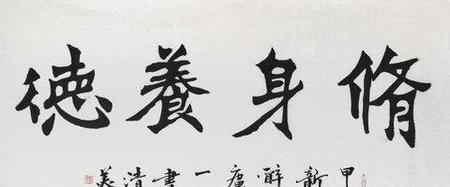 脩身養徳
甲新醉廬一書清美